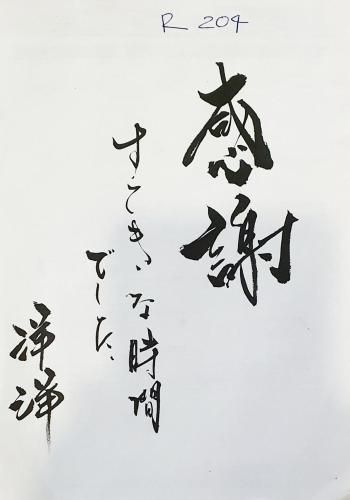 R 204
感謝
すてきな時間
でした、
洋洋